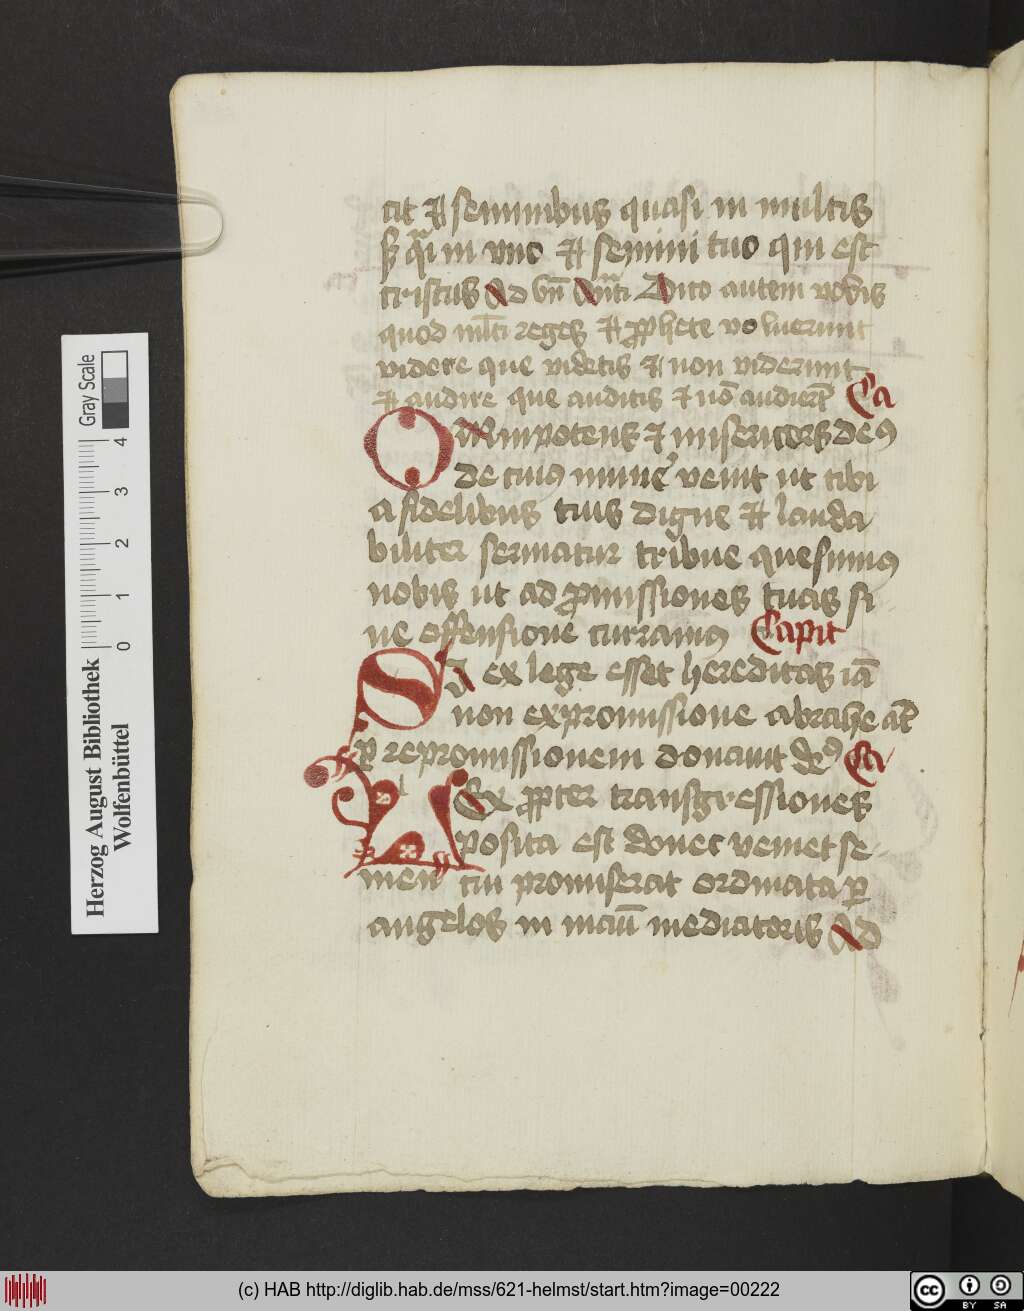 cit et seminibus quasi in multis
sʒ q̃i in vno et semini tuo qui est
cristus Ad bn̄ Añti Dico autem vobis
quod ml̄ti reges et ꝓphete voluerunt
videre que videtis et non viderunt
et audire que auditis et nō audierūt Ca
OMnipotens et misericors deꝰ
de cuiꝰ mune͛ venit ut tibi
a fidelibus tuis digne et lauda
biliter seruiatur tribue quesumus
nobis ut ad ꝓmissiones tuas si
ne offensione curramꝰ Capit
SI ex lege esset hereditas iā
non expromissione abrahe at̄
ꝑ repromissionem donauit deꝰ Ca
LEx ꝓpter transgressiones
posita est donec veniet se
men cui promiserat ordinata ꝑ
angelos in manū mediatoris Ad
Herzog August Bibliothek
Wolfenbüttel
Gray Scale
0 1 2 3 4
(c) HAB http://diglib.hab.de/mss/621-helmst/start.htm?image=00222
cc BY SA